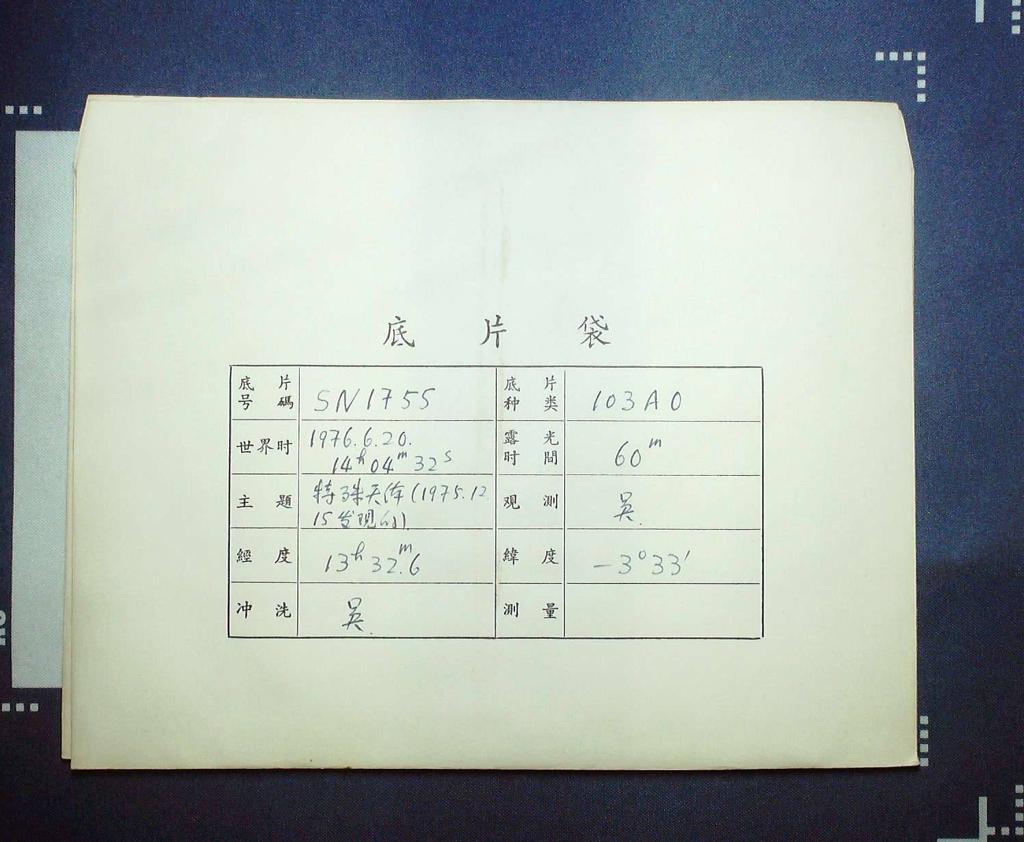 底 片 袋
底 片
号 碼
SN1755
底 片
种 类
103A0
世界时
1976.6.20.
14ʰ04ᵐ32ˢ
露 光
时 間
60ᵐ
主 題
特殊天体(1975.12
15发现的).
观 測
吴.
經 度
13ʰ32ᵐ.6
緯 度
-3°33′
冲 洗
吴.
測 量